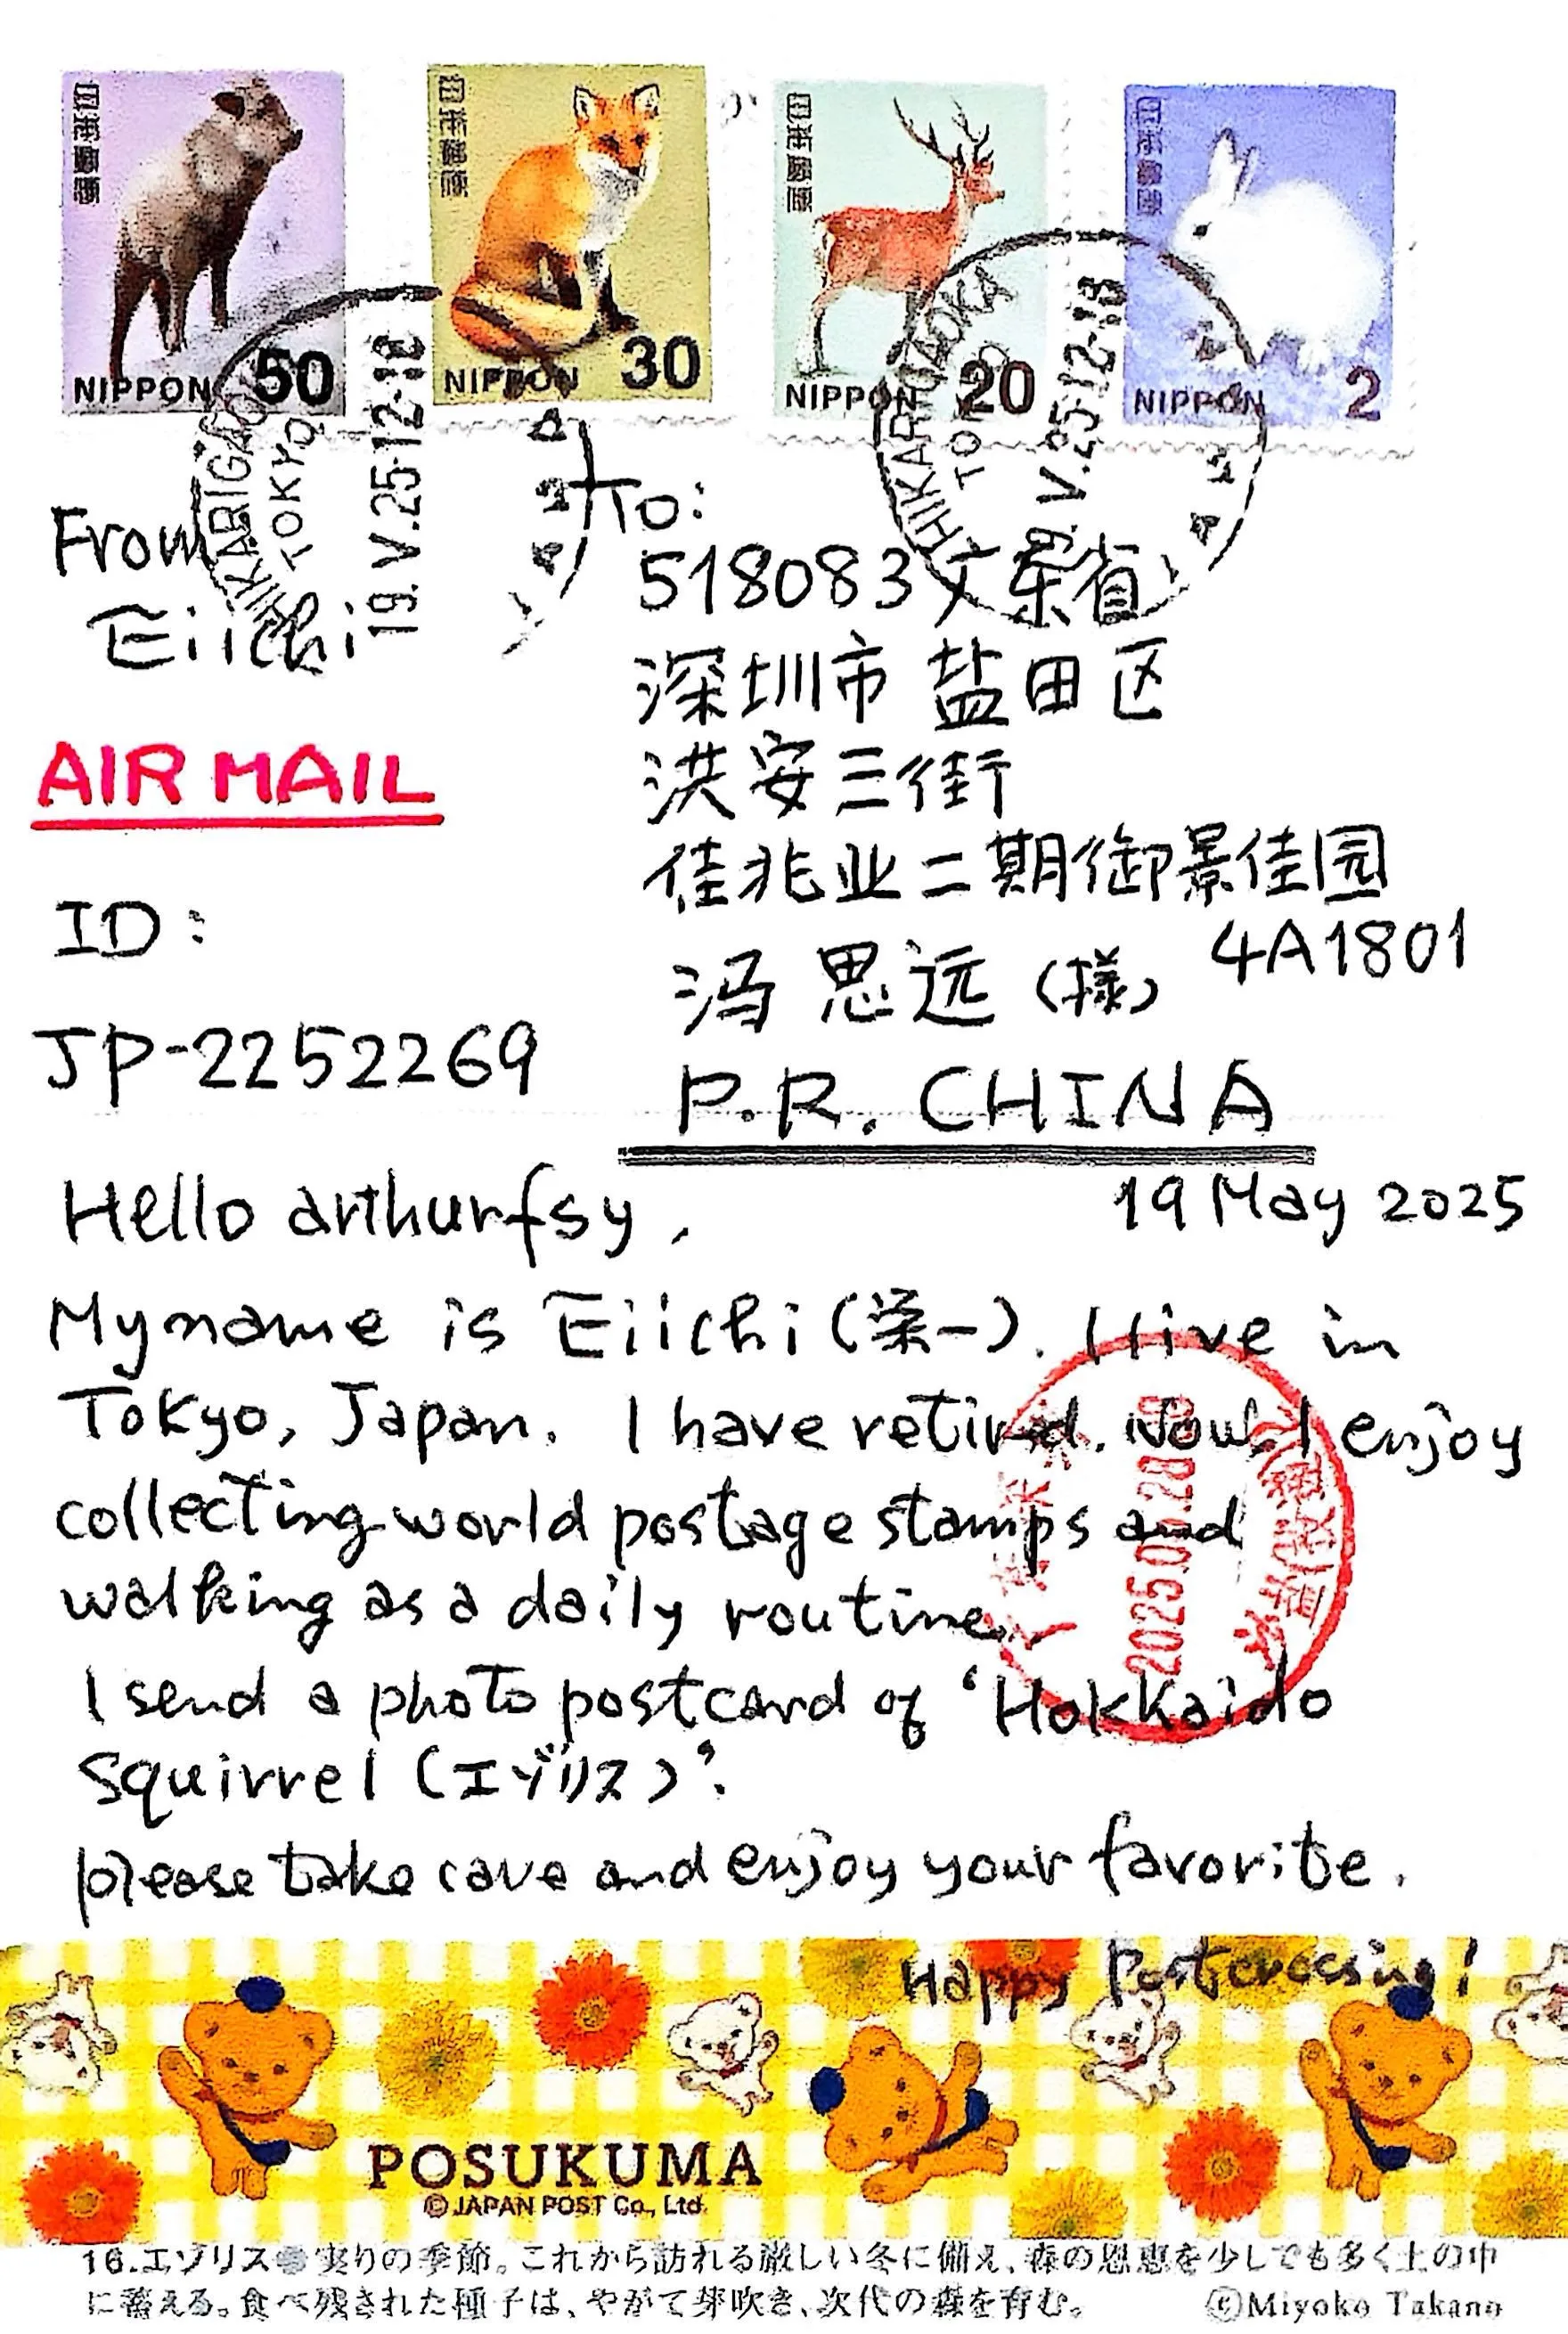 日本郵便
NIPPON 50
日本郵便
NIPPON 30
日本郵便
NIPPON 20
日本郵便
NIPPON 2
HIKARIGAOKA
TOKYO
19.V.25.12-18
HIKARIGAOKA
TOKYO
19.V.25.12-18
From
Eiichi
AIR MAIL
ID:
JP-2252269
To:
518083 广东省
深圳市 盐田区
洪安三街
佳兆业二期御景佳园
4A1801
冯思远(様)
P.R. CHINA
19 May 2025
Hello arthurfsy,
My name is Eiichi(栄一). I live in
Tokyo, Japan. I have retired. Now I enjoy
collecting world postage stamps and
walking as a daily routine.
I send a photo postcard of 'Hokkaido
Squirrel (エゾリス)'.
please take care and enjoy your favorite.
Happy Postcrossing!
POSUKUMA
© JAPAN POST Co., Ltd.
16.エゾリス●実りの季節。これから訪れる厳しい冬に備え、森の恩恵を少しでも多く土の中
に蓄える。食べ残された種子は、やがて芽吹き、次代の森を育む。 ©Miyoko Takano